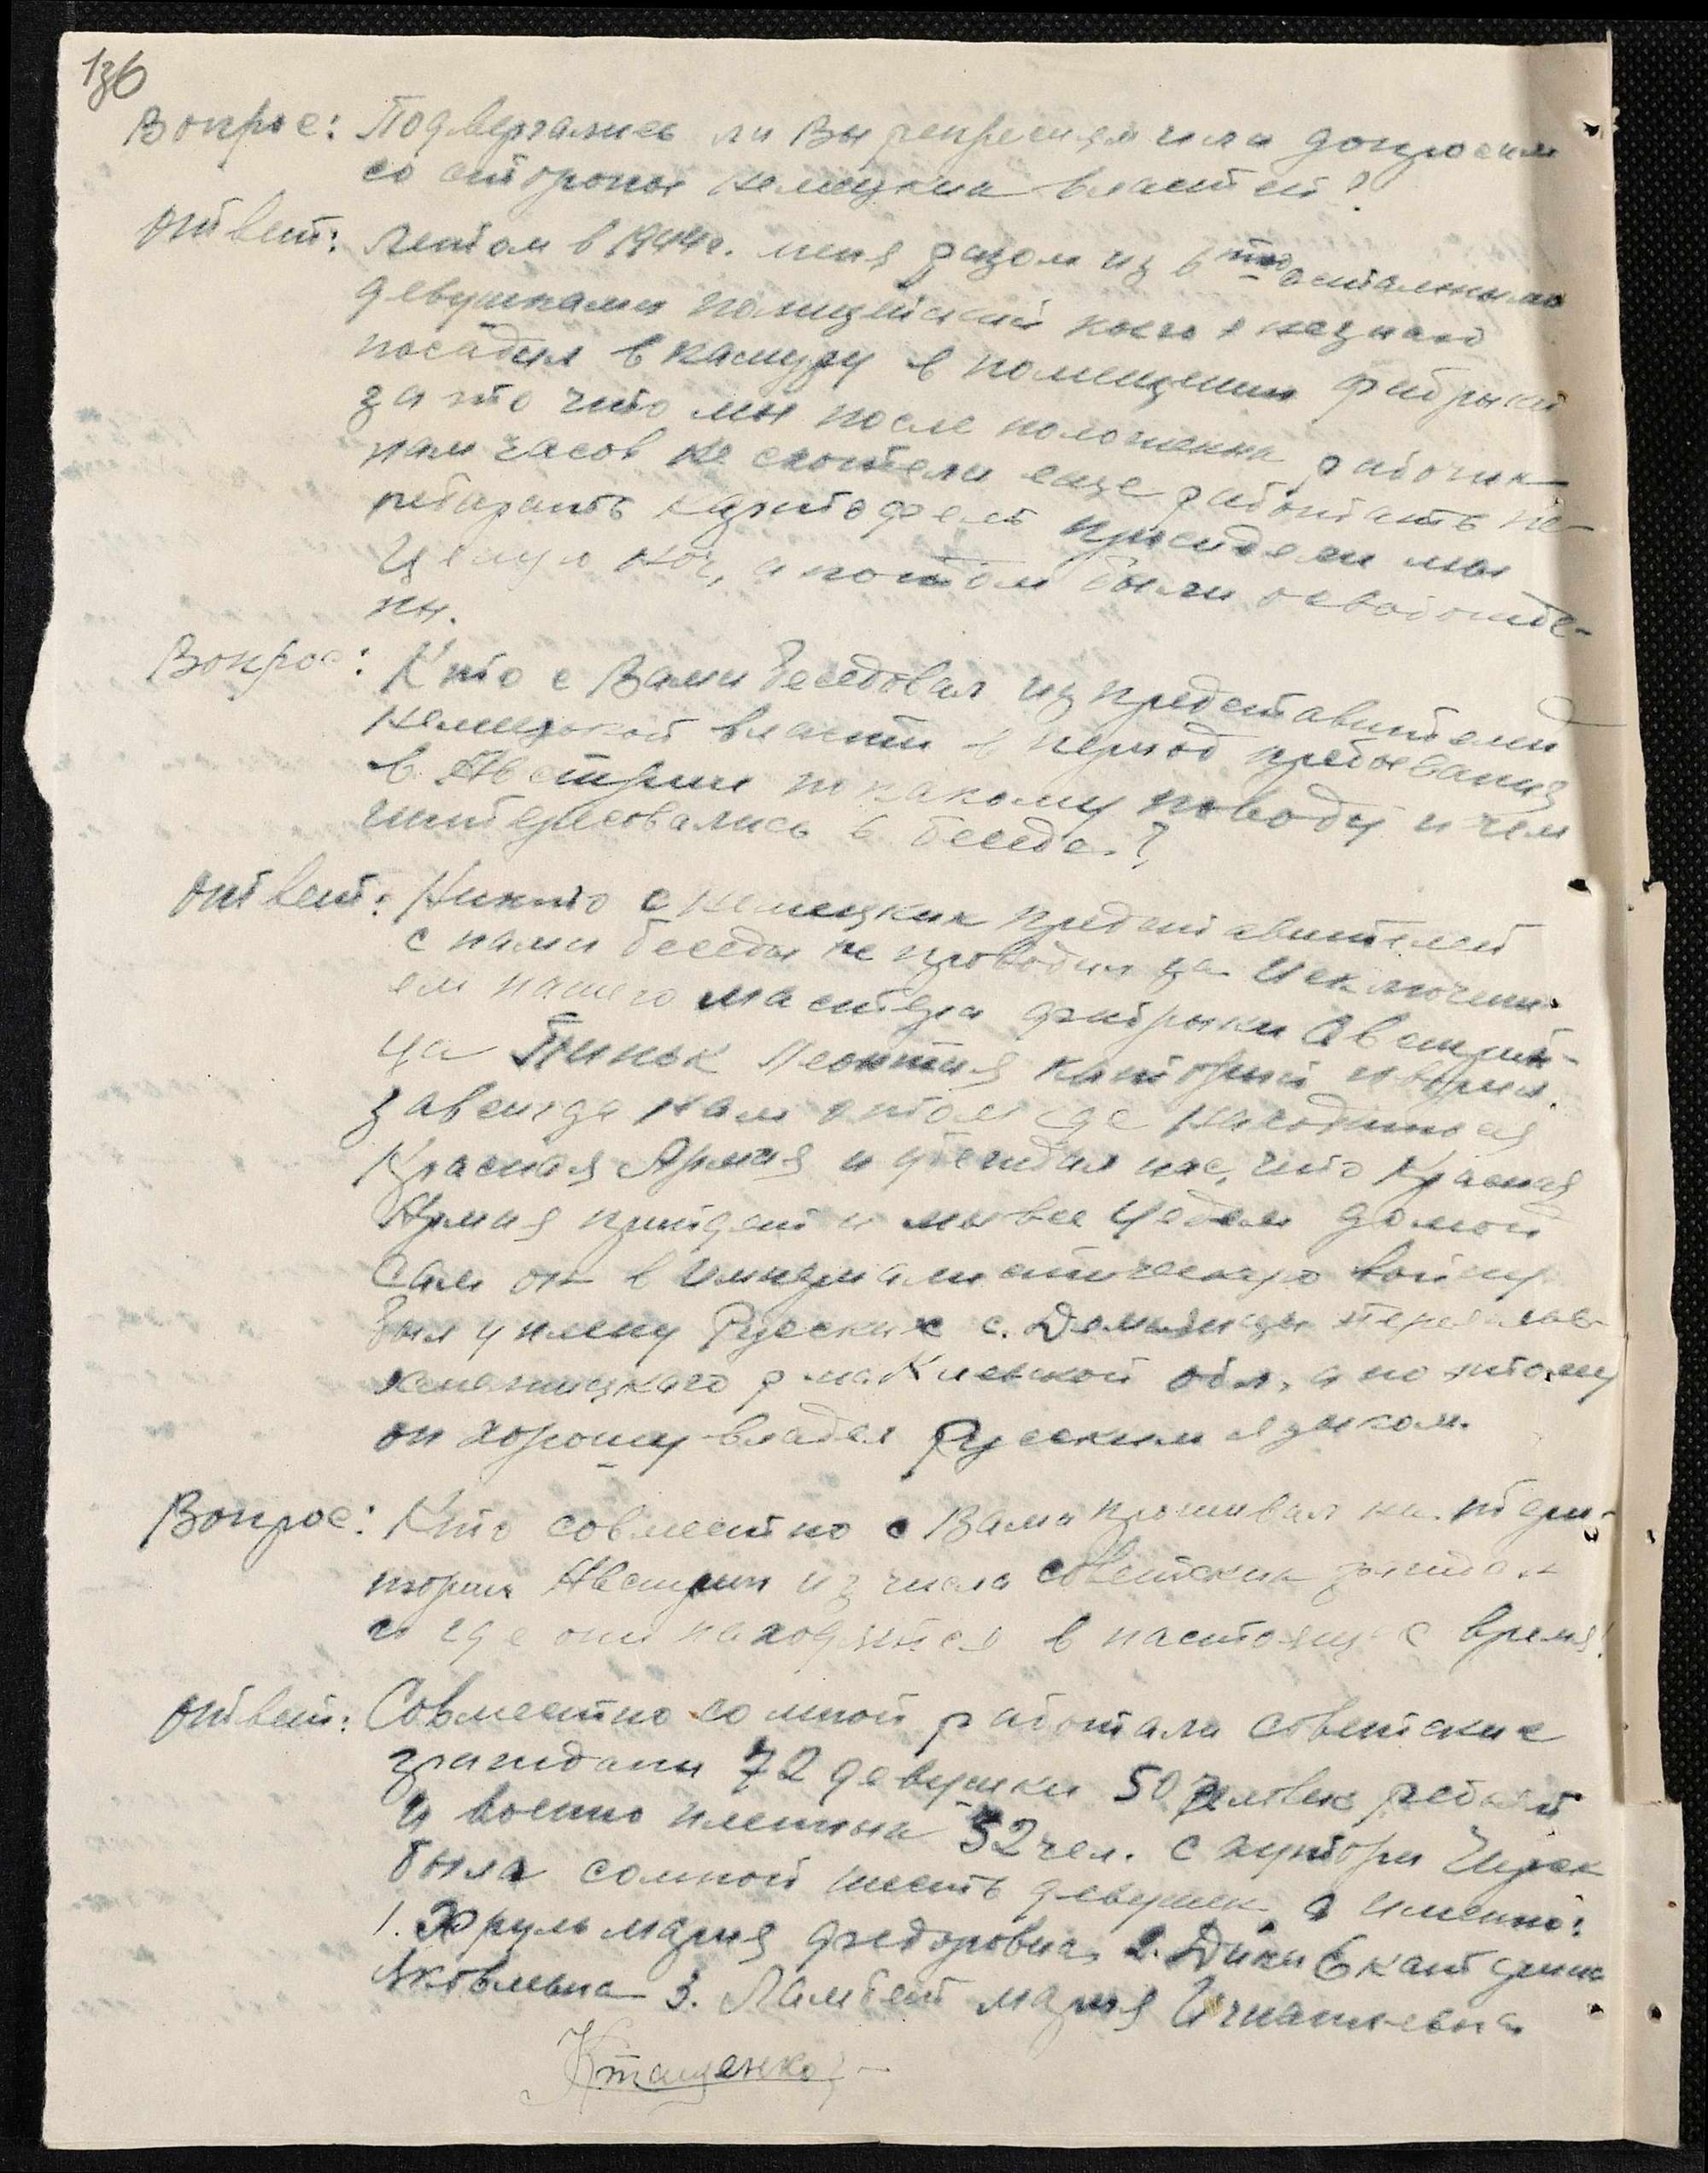 136
Вопрос: Подвергались ли Вы репресиям или допросам
со стороны немецких властей?
Ответ: Летом в 1944г. меня разом из 6тю остальными
девушками полицейский коего я незнаю
посадил в камеру в помещении фабрыки
за это что мы после положенных рабочих
нам часов не схотели еще работать пе-
ребирать картофель просидели мы
целую ноч, а потом были освобожде-
ны.
Вопрос: Кто с Вами беседовал из представителей
немецкой власти в период пребования
в Австрии по какому поводу и чем
интересовались в беседе?
Ответ: Никто с немецких представителей
с нами беседы не проводил за исключени-
ем нашего мастера фабрыки Австрий-
ца Леонтия каторый говорил
завсегда нам о том где находиться
Красная Армия и убеждал нас, что Красная
Армия прийдет и мы все уедем домой
Сам он в Империалистическую войну
был у плену Русских с.
р-на Киевской обл, а поэтому
он хорошу владел Русским языком.
Вопрос: Кто совместно с Вами проживал на тери-
тории Австрии из числа советских граждан
и где они находяться в настоящее время?
Ответ: Совместно со мной работали советские
граждани 72 девушки 50 человек ребят
и военно пленных 52 чел. с хутора
была сомной шесть девушек, а именно:
1. Хруль Мария Федоровна, 2. Дики Екатерина
Яковлевна 3. Мария Игнатьевна